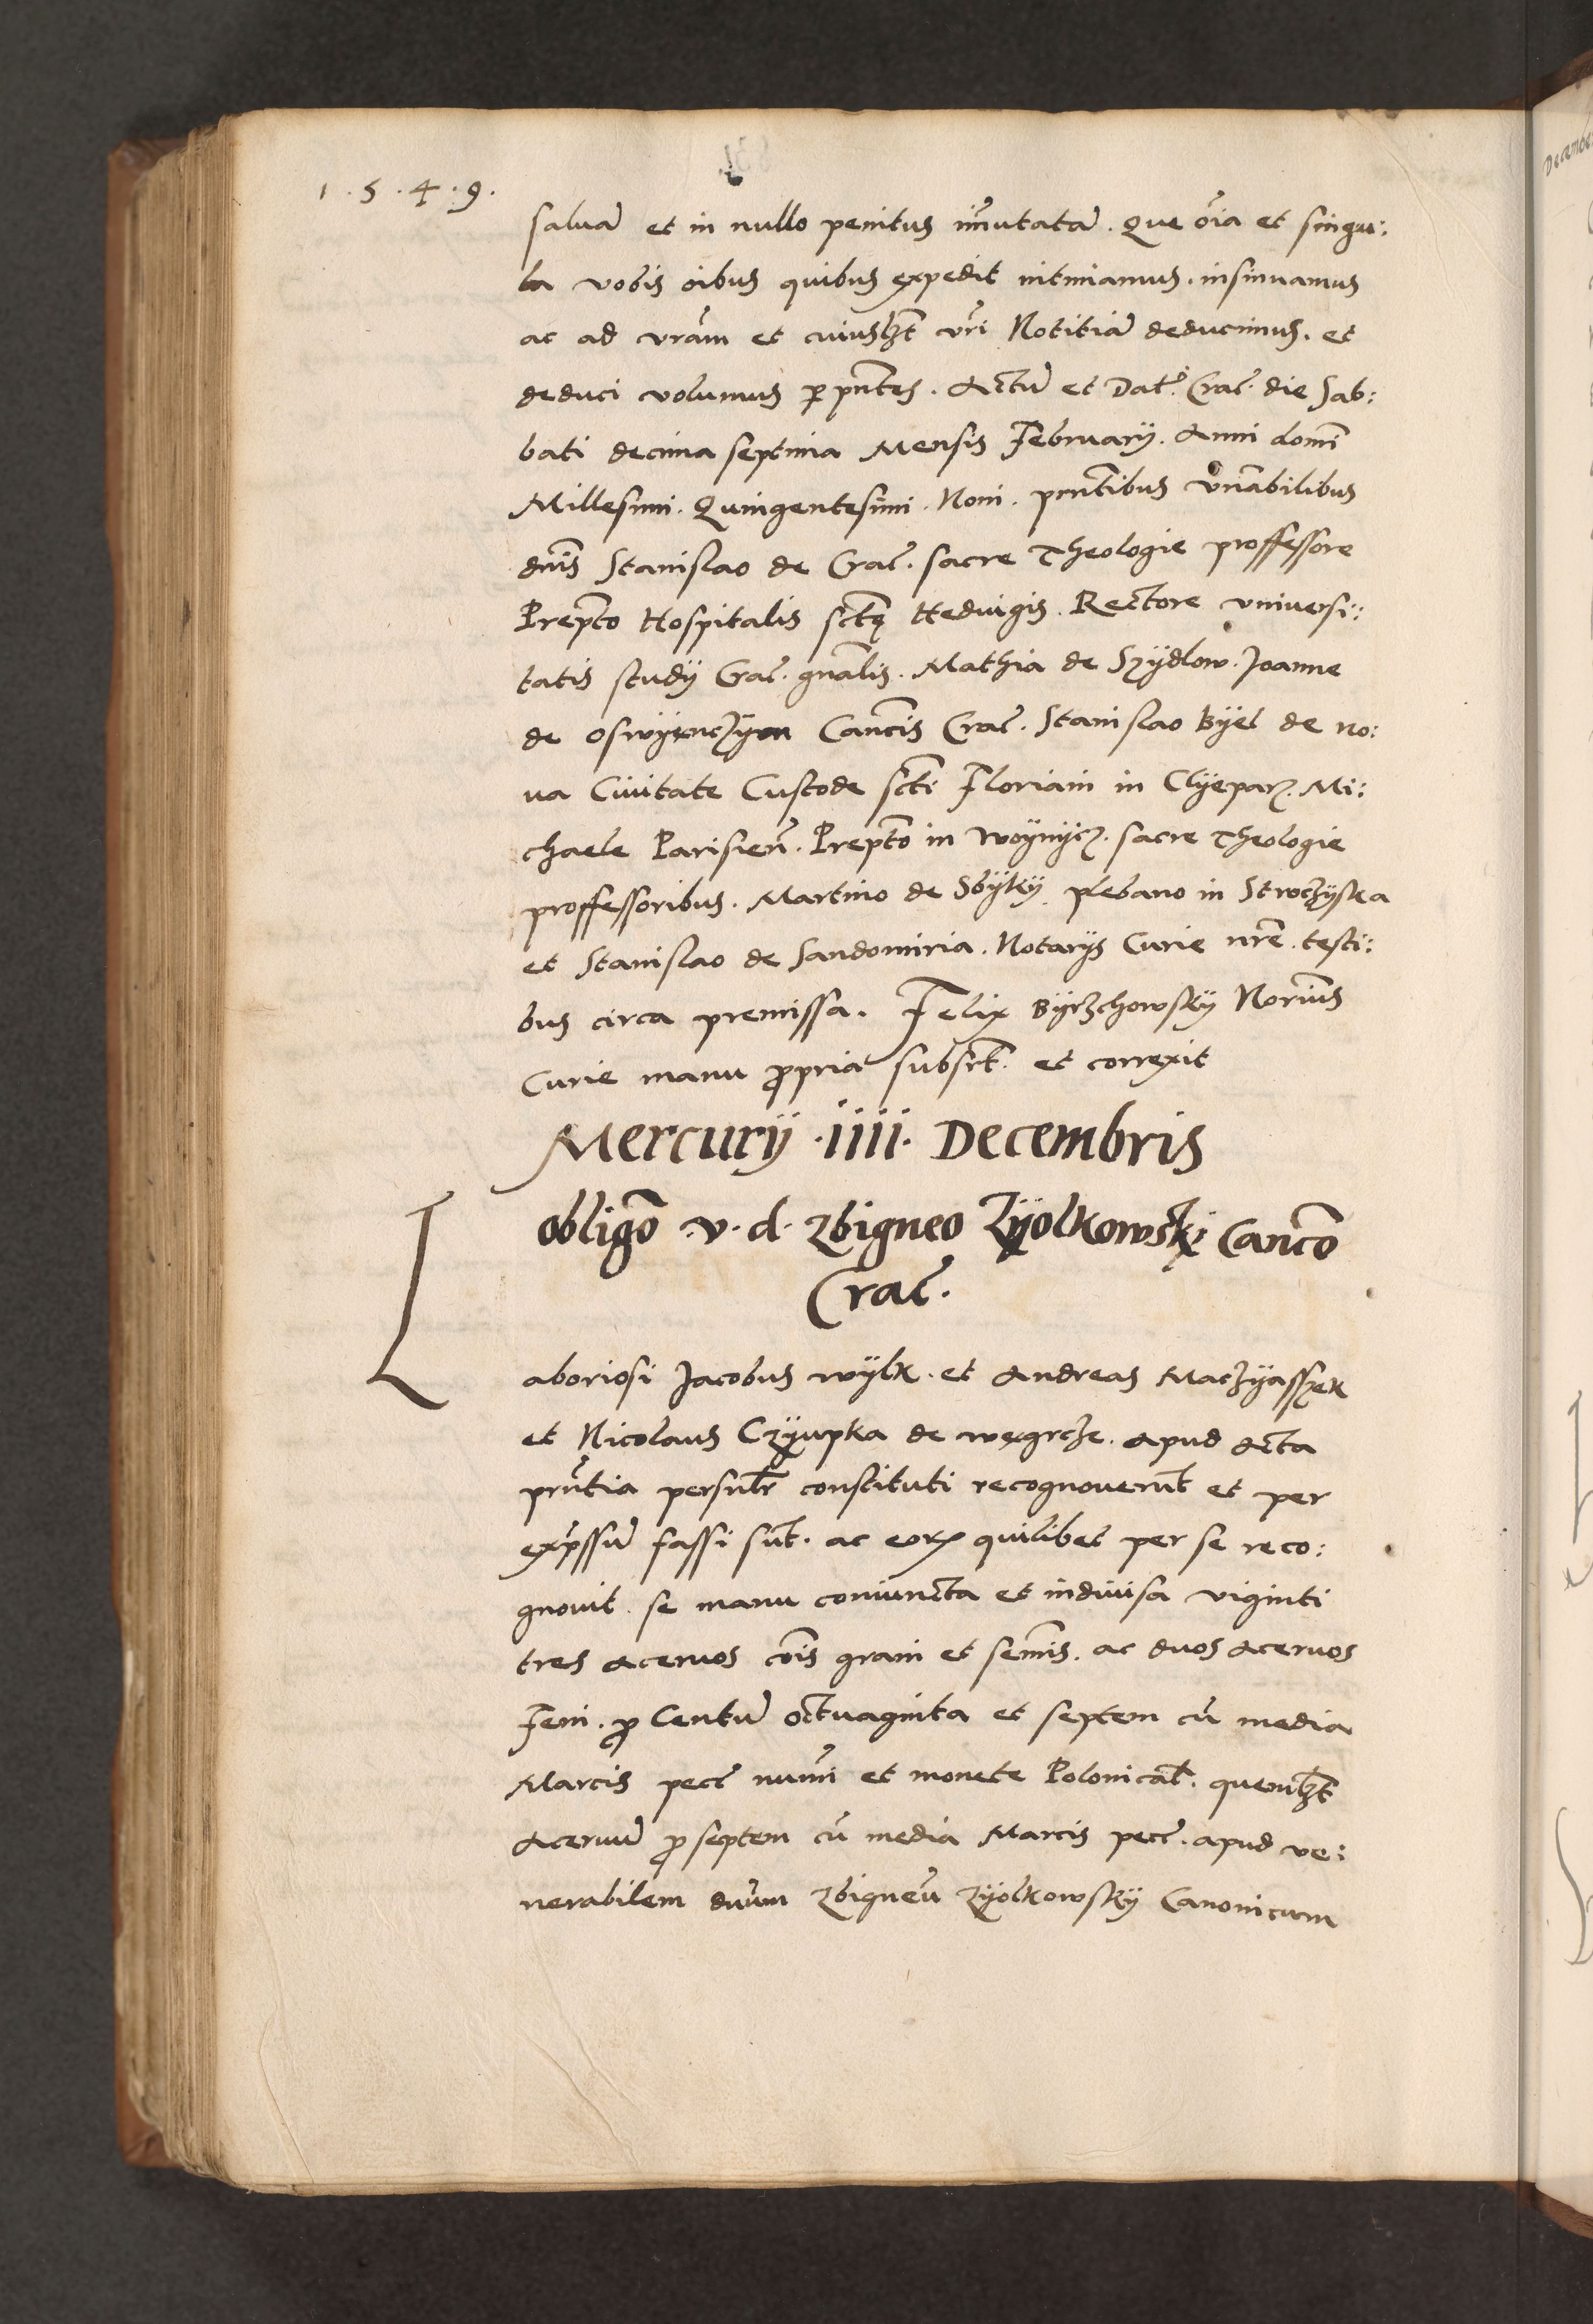 1.5.4.9.
saluã et in nullo penitus im̃utatã. Que oĩa et singu:
la vobis oĩbus quibus expedit intimamus. insinuamus
ac ad vrãm et cuiuslzt vrĩ Notitiã deducimus. et
deduci volumus ꝑ pñtes. Actũ et Dat. Crac̃. die Sab:
bati decima septima Mensis February. Anni domĩ
Millesimi. Quingentesimi. Noni. pñtibus vñabilibus
dnĩs Stanislao de Crac̃. sacre Theologie proffessore
Prepto Hospitalis sctę Heduigis. Rectore vniuersi:
tatis study Crac̃. gnãlis. Mathia de Szydlow. Joanne
de Oswyenczym Cancis Crac̃. Stanislao Byel de no:
ua Ciuitate Custode scti Floriani in Clyeparz. Mi:
chaele Parisieñ. Prepto in Woynycz. sacre Theologie
proffessoribus. Martino de Sbyky plebano in Stroczyska
et Stanislao de Sandomiria. Notarys Curie nrẽ. testi:
bus circa premissa. Felix Byerzchowsky Norius
Curie manu ꝓpria subscrt. et correxit
Mercury .iiii. Decembris
obligõ .v. d. Zbigneo Zyolkowski Canco
Crac̃.
Laboriosi Jacobus wylk. et Andreas Maczyasszek
et Nicolaus Czyupka de węgrcze. apud Acta
pñtia persnlr constituti recognouerũt et per
exp̃ssũ fassi sũt. ac eorꝫ quilibet per se reco:
gnouit. se manu coniuncta et indiuisa viginti
tres aceruos cõis grani et semĩs. ac duos aceruos
Feni. ꝓ Centũ octuaginta et septem cũ media
Marcis pecẽ num̃i et monete Polonical̃. quemlzt
aceruũ ꝓ septem cũ media Marcis pecẽ. apud ve:
nerabilem dñum Zbigneũ Zyolkowsky Canonicum